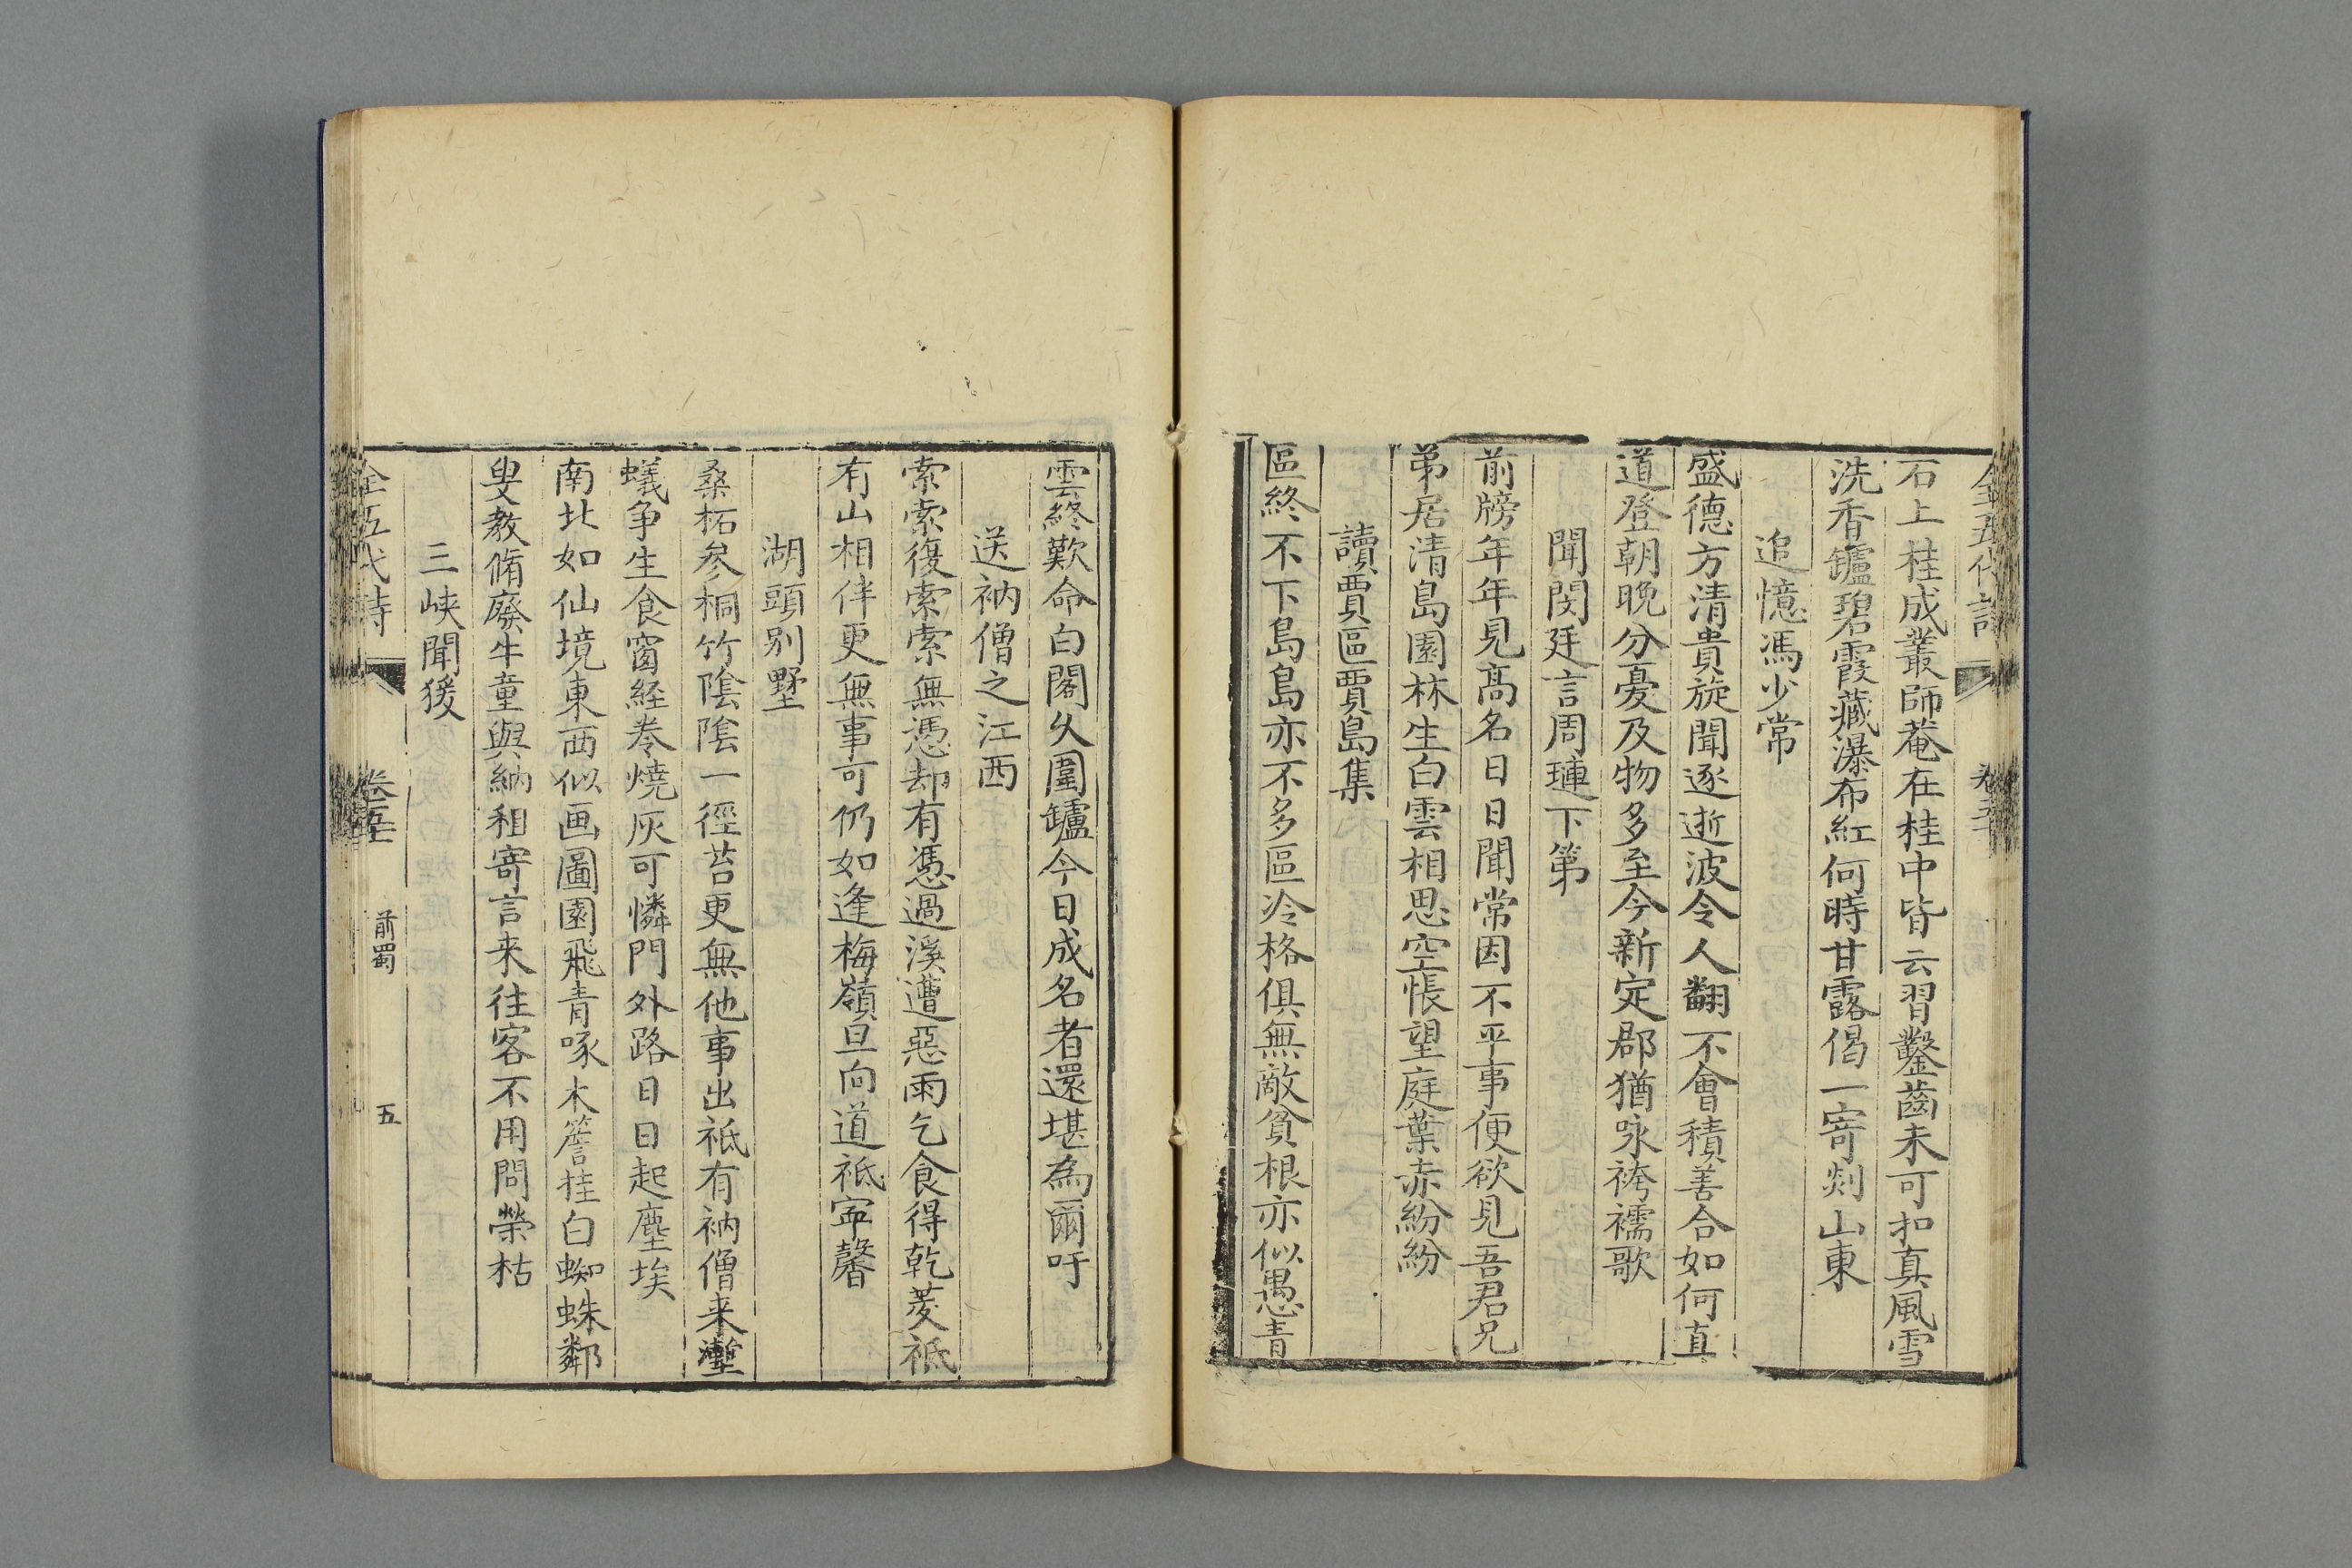 全五代詩
石上桂成叢師菴在桂中皆云習鑿齒未可扣真風雪
洗香罏碧霞藏瀑布紅何時甘露偈一寄剡山東
追憶馮少常
盛德方清貴旋聞逐逝波令人翻不會積善合如何直
道登朝晚分憂及物多至今新定郡猶咏袴襦歌
聞閔廷言周璉下第
前牓年年見高名日日聞常因不平事便欲見吾君兄
弟居清島園林生白雲相思空悵望庭葉赤紛紛
讀賈區賈島集
區終不下島島亦不多區冷格俱無敵貧根亦似愚青
雲終歎命白閣久圍罏今日成名者還堪為爾吁
送衲僧之江西
索索復索索無憑却有憑過溪遭惡雨乞食得乾菱祗
有山相伴更無事可仍如逢梅嶺旦向道祗寍馨
湖頭別墅
桑柘參桐竹陰陰一徑苔更無他事出祗有衲僧来塹
蟻爭生食窗經卷燒灰可憐門外路日日起塵埃
南北如仙境東西似画圖園飛青啄木簷挂白蜘蛛鄰
叟教脩廢牛童與納租寄言来往客不用問榮枯
三峽聞猨
全五代詩 卷五十 前蜀 五